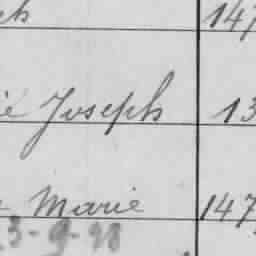 147
Joseph 13
Marie 147
3-9-98